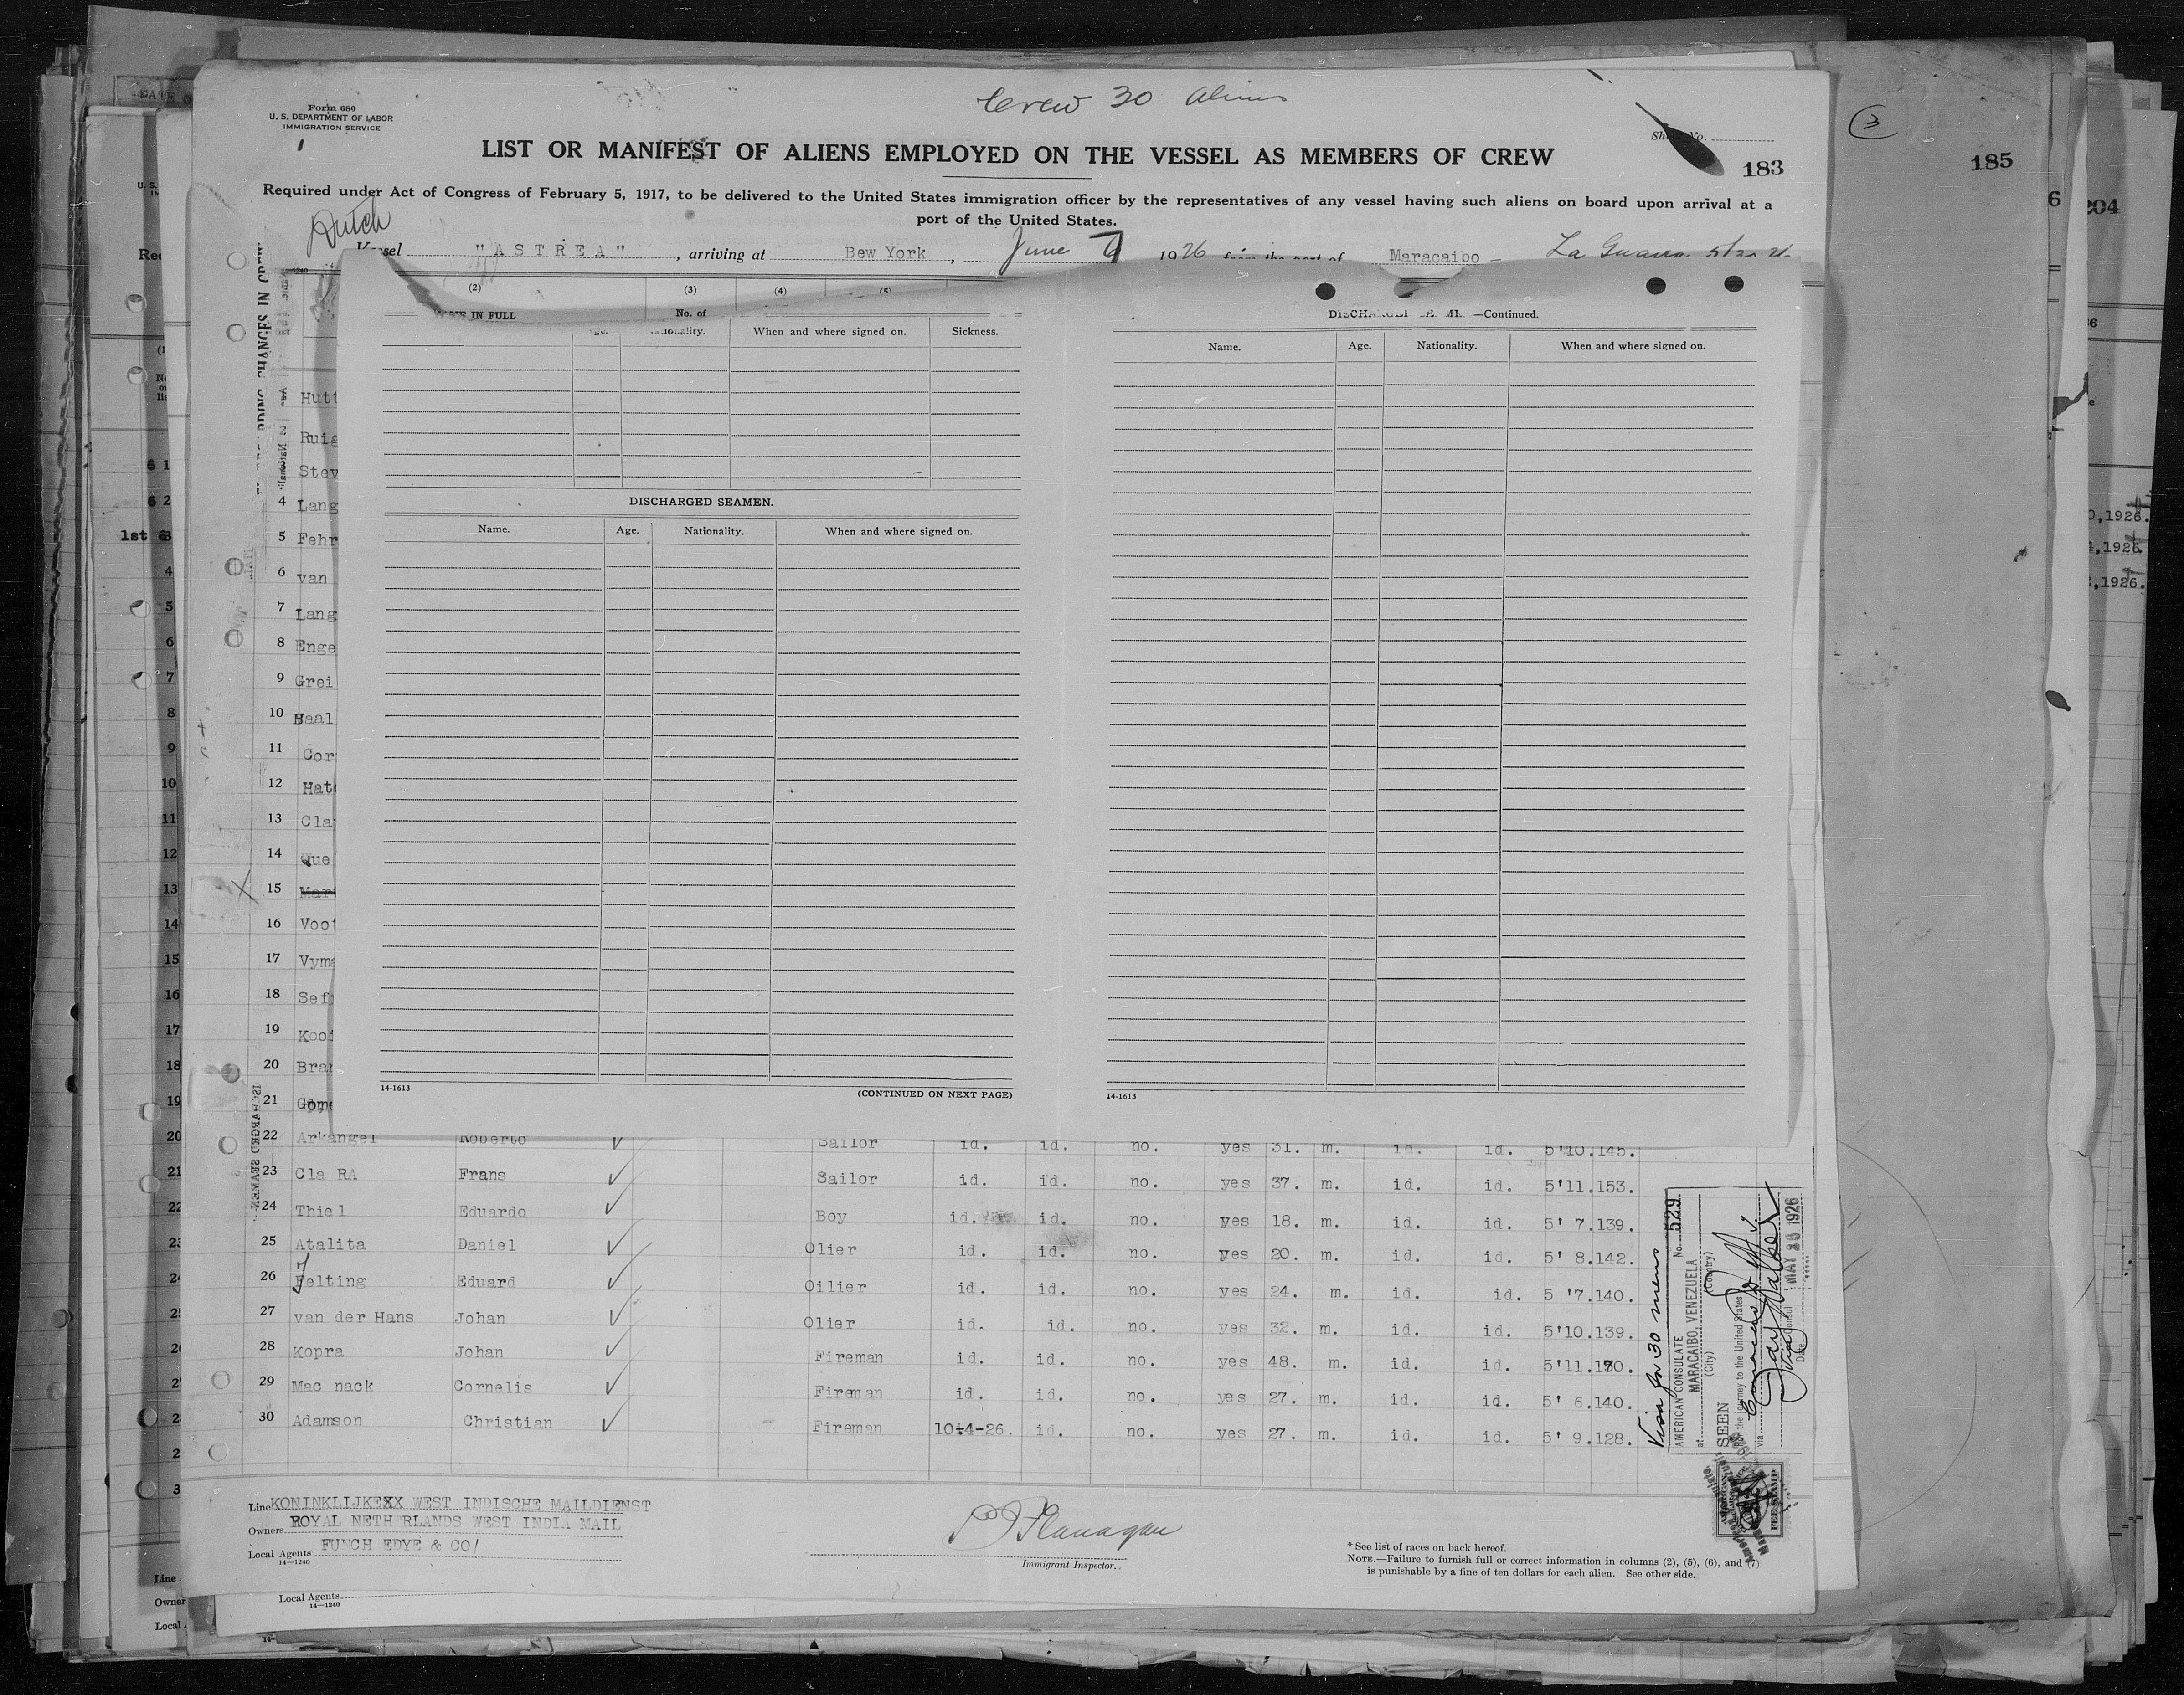 Crew 30 Aliens
Form 680
U. S. DEPARTMENT OF LABOR
IMMIGRATION SERVICE
3
183
185
204
LIST OR MANIFEST OF ALIENS EMPLOYED ON THE VESSEL AS MEMBERS OF CREW
Required under Act of Congress of February 5, 1917, to be delivered to the United States immigration officer by the representatives of any vessel having such aliens on board upon arrival at a
port of the United States.
Dutch
Vessel "ASTREA", arriving at Bew York, June 7 1926 from the port of Maracaibo - La Guaira
(2) (3) (4) (5)
IN FULL No. of
Age. Nationality. When and where signed on. Sickness.
DISCHARGED SEAMEN.
Name. Age. Nationality. When and where signed on.
14-1613 (CONTINUED ON NEXT PAGE)
—Continued.
Name. Age. Nationality. When and where signed on.
14-1613
1 Hutt
2 Ruig
3 Stev
4 Lang
5 Fehr
6 van
7 Lang
8 Enge
9 Grei
10 Baal
11 Cor
12 Hat
13 Cla
14 Que
15 Mar
16 Voo
17 Vyma
18 Sef
19 Koo
20 Bra
21 Gome
22 Arkangel Roberto Sailor id. id. no. yes 31. m. id. id. 5'10.145.
23 Cla RA Frans Sailor id. id. no. yes 37. m. id. id. 5'11.153.
24 Thiel Eduardo Boy id. id. no. yes 18. m. id. id. 5' 7.139.
25 Atalita Daniel Olier id. id. no. yes 20. m. id. id. 5' 8.142.
26 Jelting Eduard Oilier id. id. no. yes 24. m. id. id. 5 '7.140.
27 van der Hans Johan Olier id. id. no. yes 32. m. id. id. 5'10.139.
28 Kopra Johan Fireman id. id. no. yes 48. m. id. id. 5'11.170.
29 Mac nack Cornelis Fireman id. id. no. yes 27. m. id. id. 5' 6.140.
30 Adamson Christian Fireman 10-4-26. id. no. yes 27. m. id. id. 5' 9.128.
Visa for 30 mens
AMERICAN CONSULATE No. 529
at MARACAIBO, VENEZUELA
(City) (Country)
SEEN
For the journey to the United States
via
Date MAY 26 1926
FEE STAMP
Line KONINKLIJKEXX WEST INDISCHE MAILDIENST
Owners ROYAL NETHERLANDS WEST INDIA MAIL
Local Agents FUNCH EDYE & CO/
14—1240
Flanagan
Immigrant Inspector.
* See list of races on back hereof.
NOTE.—Failure to furnish full or correct information in columns (2), (5), (6), and (7)
is punishable by a fine of ten dollars for each alien. See other side.
Local Agents
14—1240
Line
Owner
Local